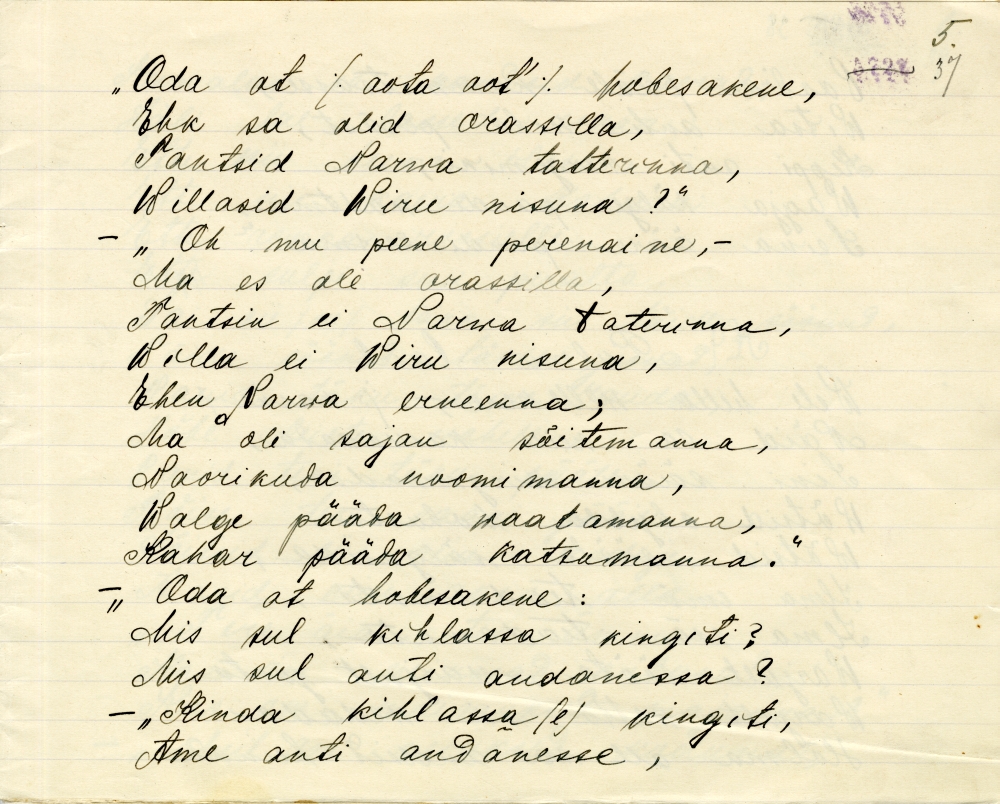 5.
37
„Oda ot /: oota oot' :/. hobesakene,
Ehk sa olid orassilla,
Tantsid Narwa tatterinna,
Willasid Wiru nisuna?“
– „Oh mu peene perenaine,–
Ma es ole orassilla,
Tantsin ei Narwa taterinna,
Willa ei Wiru nisuna,
Ehen Narwa erneenna;
Ma oli sajan sõitemanna,
Naorikuda noomimanna,
Walge pääda waatamanna,
Kahar pääda katsumanna.“
– „Oda ot hobesakene:
Mis sul kihlassa kingiti?
Mis sul anti andanessa?
– „Kinda kihlassa (e) kingiti,
Ame anti andanesse,